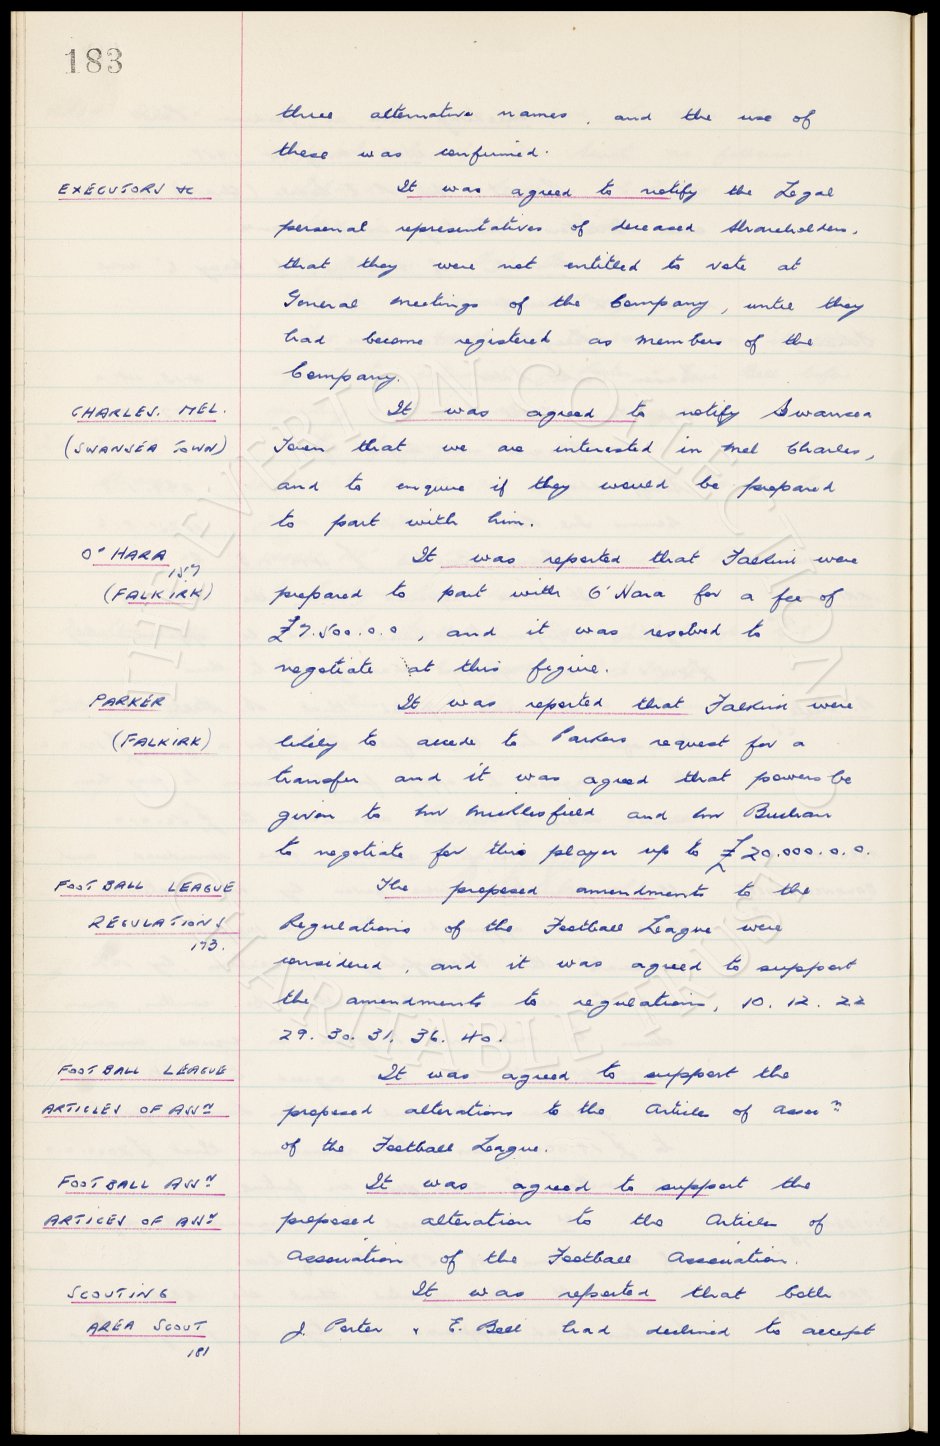 183
three alternative names, and the use of
these was confirmed.
EXECUTORS &c
It was agreed to notify the Legal
personal representatives of deceased shareholders,
that they were not entitled to vote at
General Meetings of the Company, until they
had become registered as members of the
Company.
CHARLES. MEL.
(SWANSEA TOWN)
It was agreed to notify Swansea
Town that we are interested in Mel Charles,
and to enquire if they would be prepared
to part with him.
O'HARA
157
(FALKIRK)
It was reported that Falkirk were
prepared to part with O'Hara for a fee of
£7.500.0.0, and it was resolved to
negotiate at this figure.
PARKER
(FALKIRK)
It was reported that Falkirk were
likely to accede to Parkers request for a
transfer and it was agreed that powers be
given to Mr Micklesfield and Mr Buchan
to negotiate for this player up to £20.000.0.0.
FOOTBALL LEAGUE
REGULATIONS
173.
The proposed amendments to the
Regulations of the Football League were
considered, and it was agreed to support
the amendments to regulations, 10. 12. 22
29. 30. 31. 36. 40.
FOOTBALL LEAGUE
ARTICLES OF ASSN
It was agreed to support the
proposed alterations to the Articles of Assocn
of the Football League.
FOOTBALL ASSN
ARTICES OF ASSN
It was agreed to support the
proposed alteration to the Articles of
Association of the Football Association.
SCOUTING
AREA SCOUT
181
It was reported that both
J. Porter & E. Bell had declined to accept
© THE EVERTON COLLECTION
CHARITABLE TRUST